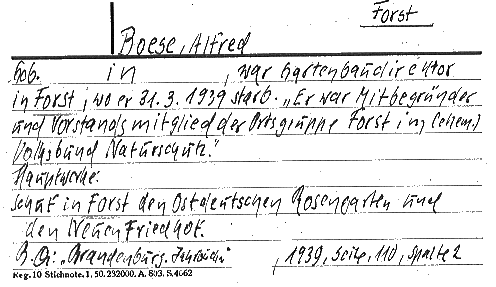 Forst
Boese, Alfred
Geb. in , war Gartenbaudirektor
in Forst, wo er 31.3.1939 starb. „Er war Mitbegründer
und Vorstandsmitglied der Ortsgruppe Forst im (ehem.)
Volksbund Naturschutz."
Hauptwerke:
schuf in Forst den Ostdeutschen Rosengarten und
den Neuen Friedhof.
B.Qu: „Brandenburg. Jahrbuch" , 1939, Seite, 110, Spalte 2
Reg. 10 Stichnote. I. 50. 232000. A. 803. S. 4662